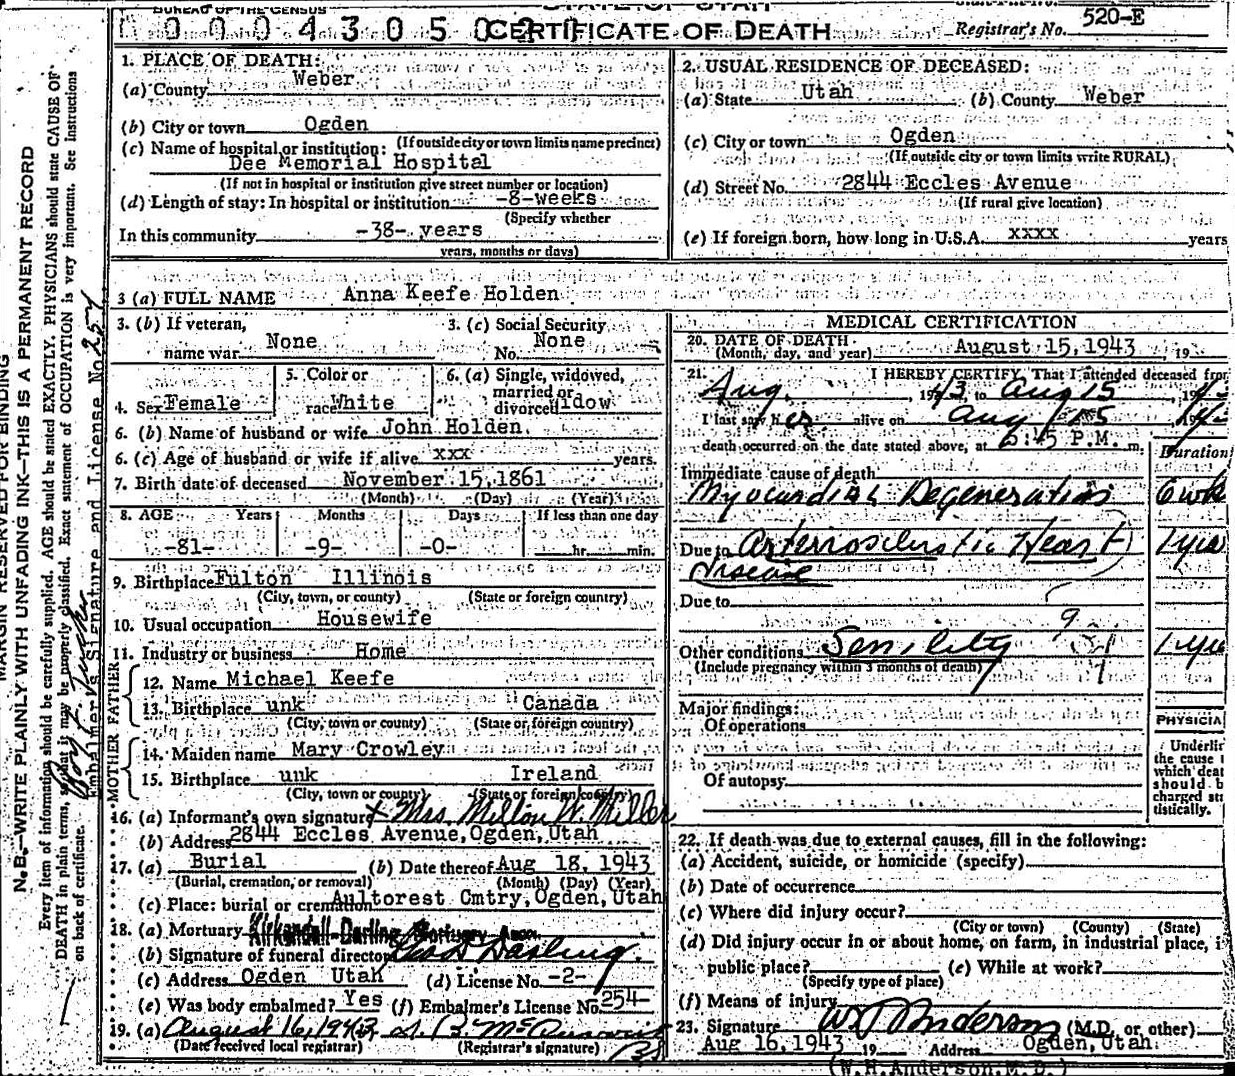 BUREAU OF THE CENSUS
STATE OF UTAH
CERTIFICATE OF DEATH
Registrar's No. 520-E
MARGIN RESERVED FOR BINDING
N. B.—WRITE PLAINLY WITH UNFADING INK—THIS IS A PERMANENT RECORD
Every item of information should be carefully supplied. AGE should be stated EXACTLY. PHYSICIANS should state CAUSE OF
DEATH in plain terms, so that it may be properly classified. Exact statement of OCCUPATION is very important. See Instructions
on back of certificate.
Embalmer's Signature and License No. 254
1. PLACE OF DEATH:
(a) County Weber
(b) City or town Ogden
(If outside city or town limits name precinct)
(c) Name of hospital or institution:
Dee Memorial Hospital
(If not in hospital or institution give street number or location)
(d) Length of stay: In hospital or institution -8-weeks
(Specify whether
In this community -38- years
years, months or days)
2. USUAL RESIDENCE OF DECEASED:
(a) State Utah (b) County Weber
(c) City or town Ogden
(If outside city or town limits write RURAL)
(d) Street No. 2844 Eccles Avenue
(If rural give location)
(e) If foreign born, how long in U.S.A. xxxx years
3 (a) FULL NAME Anna Keefe Holden
3. (b) If veteran, name war None
3. (c) Social Security No. None
4. Sex Female
5. Color or race White
6. (a) Single, widowed, married or divorced Widow
6. (b) Name of husband or wife John Holden.
6. (c) Age of husband or wife if alive xxx years.
7. Birth date of deceased November 15, 1861
(Month) (Day) (Year)
8. AGE Years Months Days If less than one day
-81- -9- -0- hr. min.
9. Birthplace Fulton Illinois
(City, town, or county) (State or foreign country)
10. Usual occupation Housewife
11. Industry or business Home
FATHER
12. Name Michael Keefe
13. Birthplace unk Canada
(City, town or county) (State or foreign country)
MOTHER
14. Maiden name Mary Crowley
15. Birthplace unk Ireland
(City, town or county) (State or foreign country)
16. (a) Informant's own signature x Mrs. Milton W. Miller
(b) Address 2844 Eccles Avenue, Ogden, Utah
17. (a) Burial (b) Date thereof Aug 18, 1943
(Burial, cremation, or removal) (Month) (Day) (Year)
(c) Place: burial or cremation Aultorest Cmtry, Ogden, Utah
18. (a) Mortuary Kirkendall-Darling Mortuary Assn.
(b) Signature of funeral director Darling.
(c) Address Ogden Utah (d) License No. -2-
(e) Was body embalmed? Yes (f) Embalmer's License No. 254-
19. (a) August 16, 1943
(Date received local registrar) (Registrar's signature)
MEDICAL CERTIFICATION
20. DATE OF DEATH
(Month, day, and year) August 15, 1943, 19
21. I HEREBY CERTIFY, That I attended deceased from
Aug., 1943 to Aug 15, 194
I last saw her alive on Aug 15 194
death occurred on the date stated above, at 6:45 P.M. m.
Duration
Immediate cause of death
Myocardial Degeneration 6 wks
Due to Arteriosclerotic Heart 1 year
Disease
Due to
Other conditions Senility 1 year
(Include pregnancy within 3 months of death)
Major findings:
Of operations
Of autopsy
PHYSICIA
Underlin
the cause t
which deat
should b
charged sta
tistically.
22. If death was due to external causes, fill in the following:
(a) Accident, suicide, or homicide (specify)
(b) Date of occurrence
(c) Where did injury occur?
(City or town) (County) (State)
(d) Did injury occur in or about home, on farm, in industrial place, i
public place? (e) While at work?
(Specify type of place)
(f) Means of injury
23. Signature W H Anderson (M.D. or other)
Aug 16, 1943 19 Address Ogden, Utah.
(W.H. Anderson, M.D.)